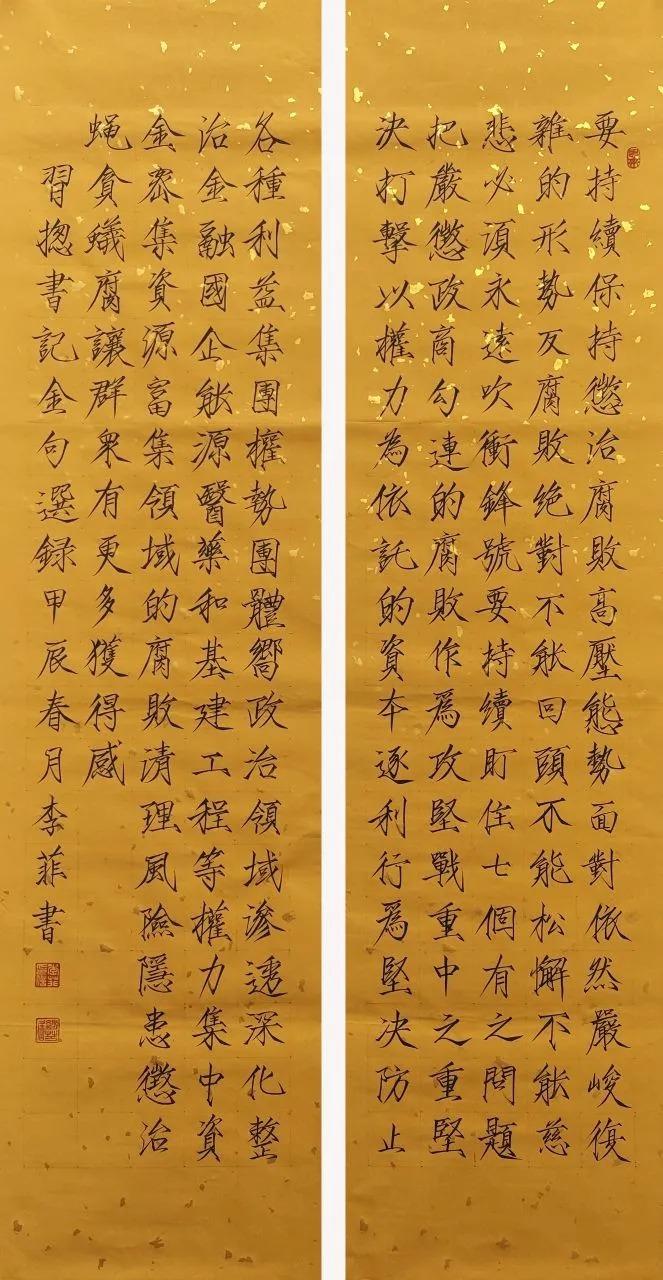 要持續保持懲治腐敗高壓態勢面對依然嚴峻復
雜的形勢反腐敗絕對不能回頭不能松懈不能慈
悲必須永遠吹衝鋒號要持續盯住七個有之問題
把嚴懲政商勾連的腐敗作爲攻堅戰重中之重堅
決打擊以權力為依託的資本逐利行爲堅決防止
各種利益集團權勢團體嚮政治領域滲透深化整
治金融國企能源醫藥和基建工程等權力集中資
金密集資源富集領域的腐敗清理風險隱患懲治
蝇貪蟻腐讓群眾有更多獲得感
習揔書記金句選録甲辰春月李菲書